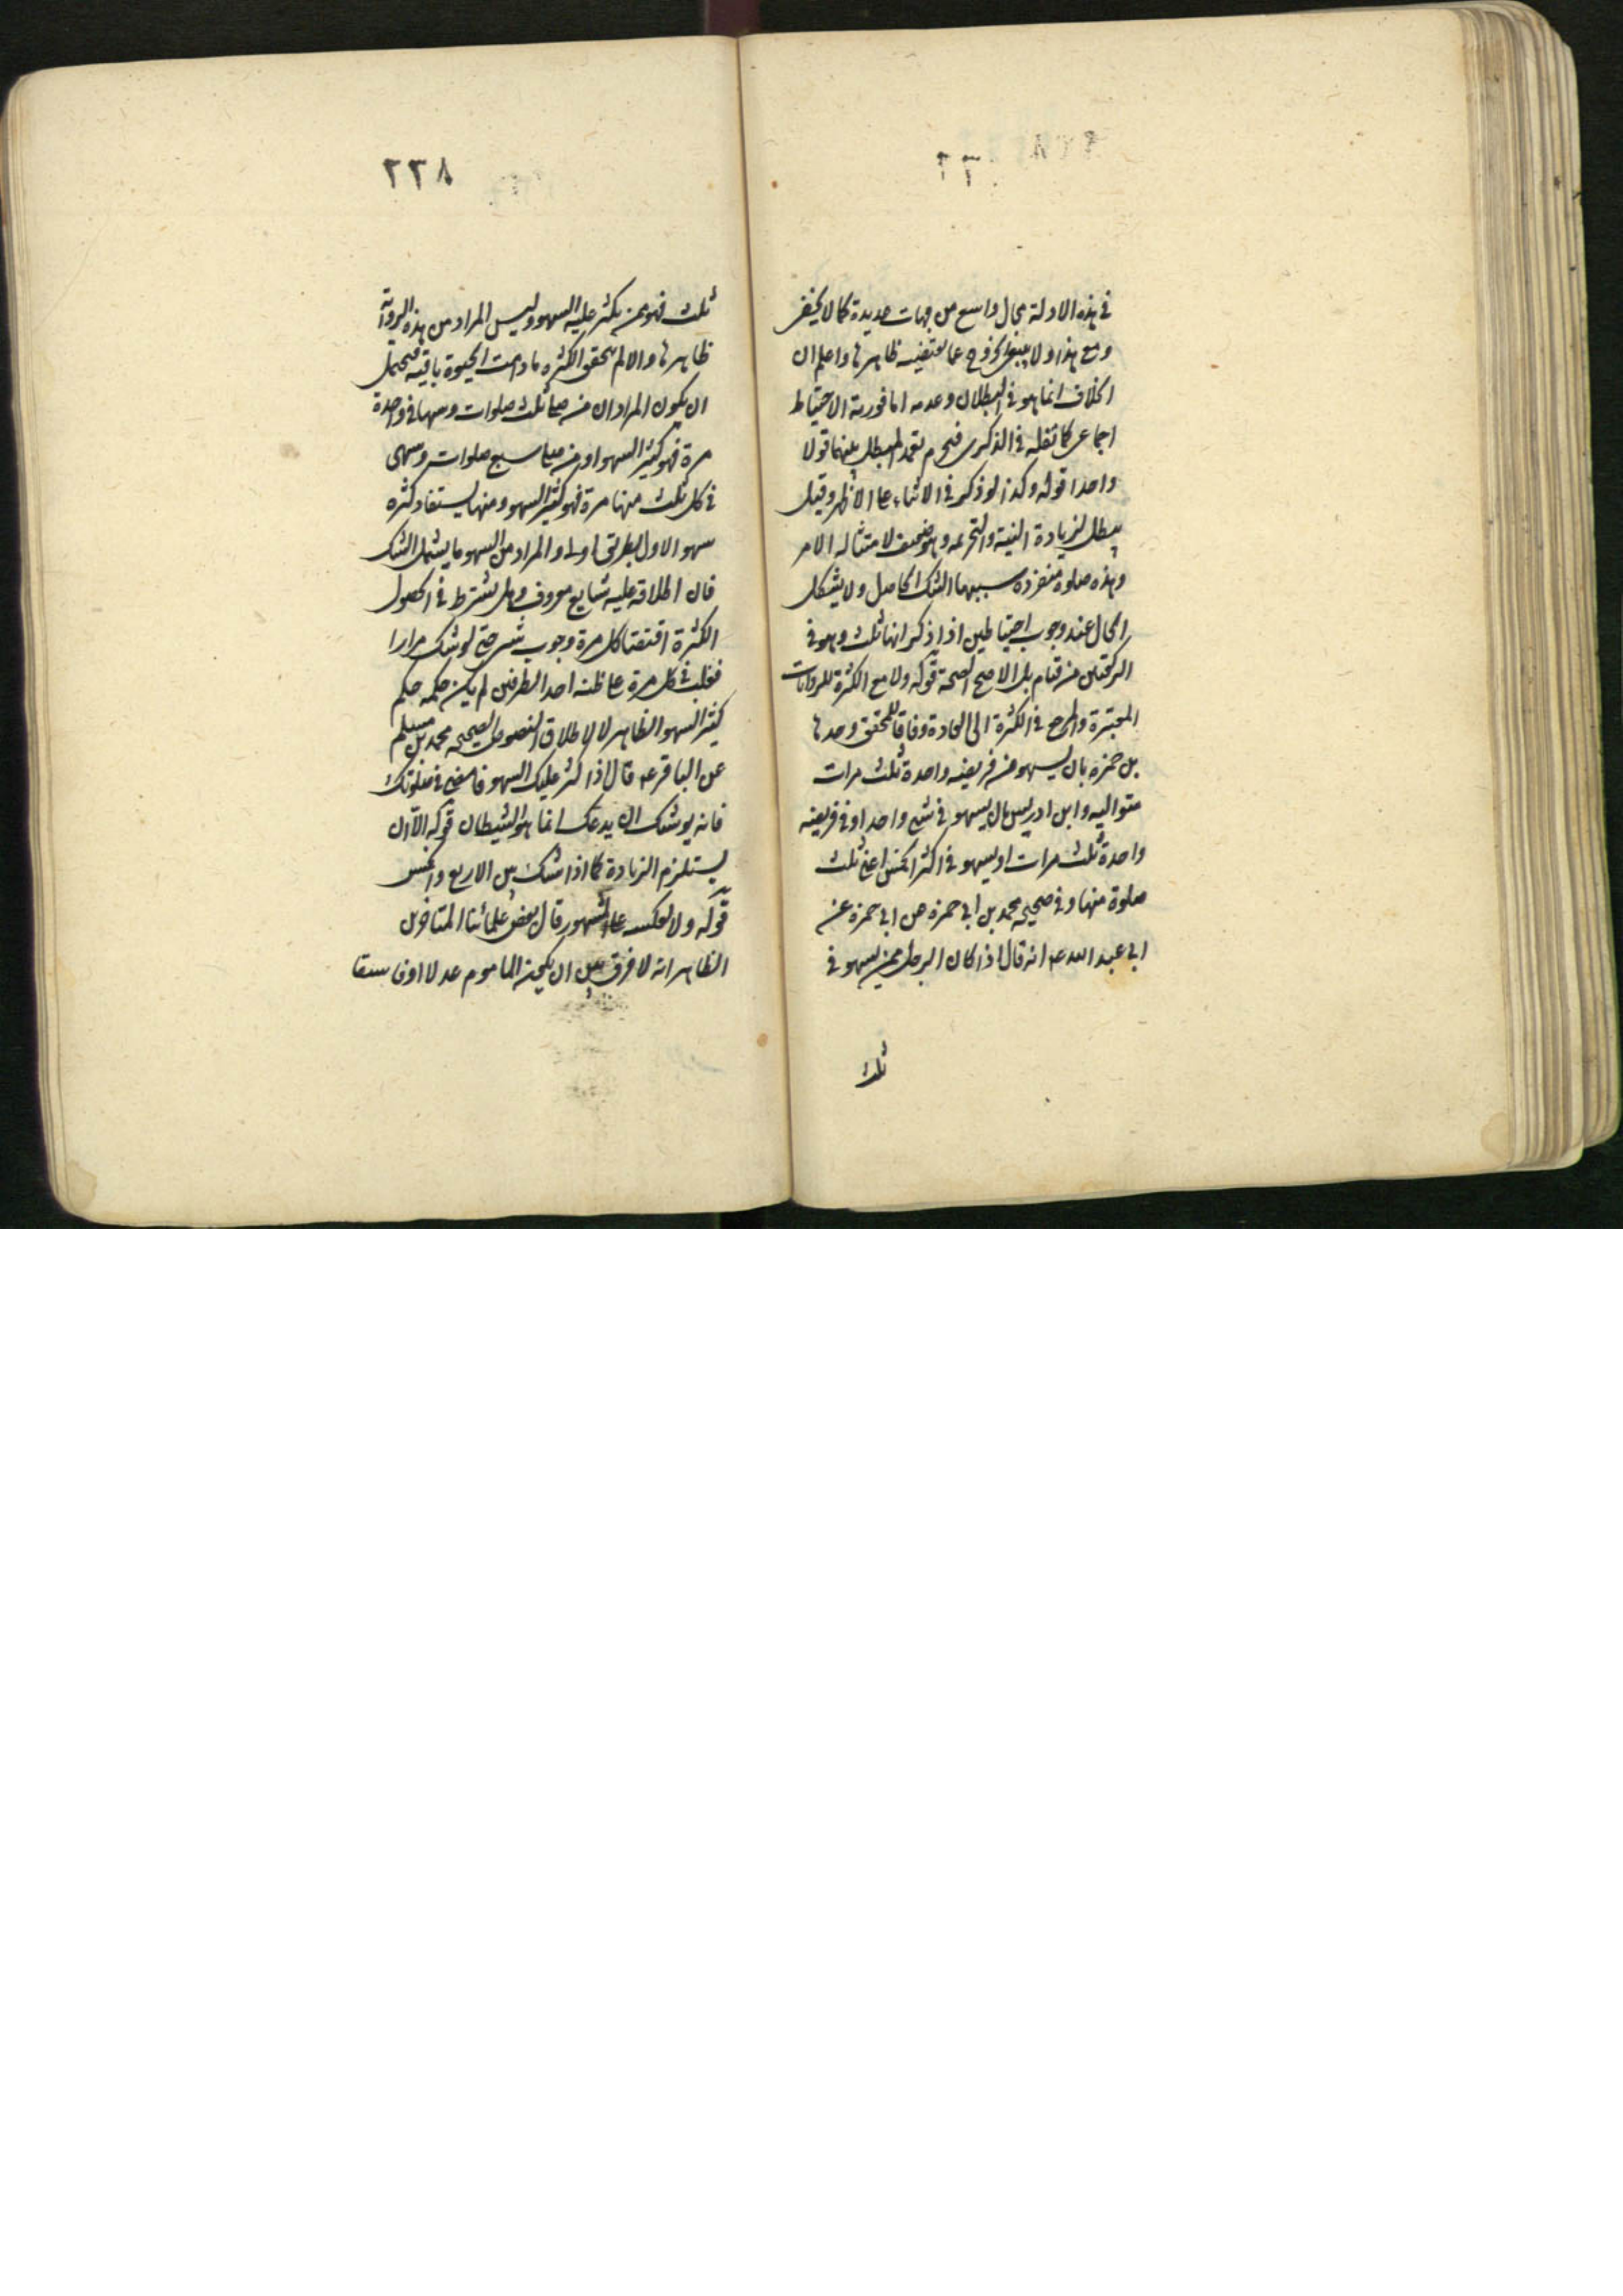 في هذه الادلة مجال واسع من جهات عديدة كما لا يخفى
ومع هذا ولا ينبغي الخروج عما يقتضيه ظاهرها واعلم ان
الخلاف انما هو في البطلان وعدمه اما فورية الاحتياط
اجماعي كما نقله في الذكرى فيحرم تعمد المبطل بينهما قولا
واحدا قوله وكذا لو ذكر في الاثناء على الاظهر وقيل
يبطل لزيادة النية والتحريمه وهو ضعيف لامتثاله الامر
وهذه صلوة منفرده سببها الشك الحاصل ولا يشكل
الحال عند وجوب احتياطين اذا ذكر انها ثلث وهو في
الركعتين من قيام بل الاصح الصحة قوله ولا مع الكثرة للروايات
المعتبرة والمرجع في الكثرة الى العادة وفاقا للمحقق وحدها
بن حمزه بان يسهو في فريضه واحدة ثلث مرات
متواليه وابن ادريس بان يسهو في شيء واحد او في فريضه
واحدة ثلث مرات او يسهو في اكثر الخمس اعني ثلث
صلوة منها وفي صحيحه محمد بن ابي حمزه عن ابي حمزه عن
ابي عبد الله ع انه قال اذا كان الرجل ممن يسهو في
ثلث
٢٣٨
ثلث فهو ممن يكثر عليه السهو وليس المراد من هذه الرواية
ظاهرها والا لم يتحقق الكثره ما دامت الحيوة باقيه فيحتمل
ان يكون المراد ان من صلى ثلث صلوات وسها في واحدة
مرة فهو كثير السهو او من صلى سبع صلوات وسهى
في كل ثلث منها مرة فهو كثير السهو ومنها يستفاد كثره
سهو الاول بطريق اولى والمراد من السهو ما يشمل الشك
فان اطلاقه عليه شايع معروف وهل يشترط في الحصول
الكثرة اقتضا كل مرة وجوب شيء حتى لو شك مرارا
فغلب في كل مرة على ظنه احد الطرفين لم يكن حكمه حكم
كثير السهو الظاهر لا لاطلاق النصوص الصحيحه محمد بن مسلم
عن الباقر ع قال اذا كثر عليك السهو فامض في صلوتك
فانه يوشك ان يدعك انما هو الشيطان قوله الا ان
يستلزم الزيادة كما اذا شك بين الاربع والخمس
قوله ولا لعكسه على المشهور قال بعض علمائنا المتاخرين
الظاهر انه لا فرق بين ان يكون الماموم عدلا او فاسقا